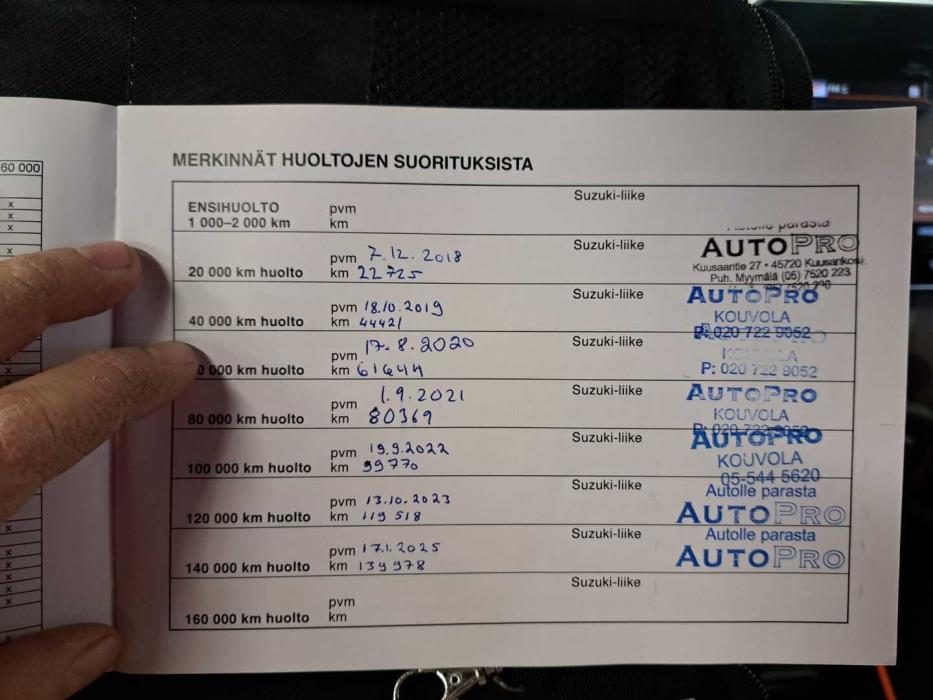 60 000
x
x
x
x
x
x
x
x
x
x
x
x
MERKINNÄT HUOLTOJEN SUORITUKSISTA
ENSIHUOLTO
1 000–2 000 km
pvm
km
Suzuki-liike
20 000 km huolto
pvm 7.12.2018
km 22725
Suzuki-liike
parasta
AUTOPRO
Kuusaantie 27 • 45720 Kuusankoski
Puh. Myymälä (05) 7520 223
40 000 km huolto
pvm 18.10.2019
km 44421
Suzuki-liike
AUTOPRO
KOUVOLA
P: 020 722 9052
0 000 km huolto
pvm 17.8.2020
km 61644
Suzuki-liike
P: 020 722 9052
80 000 km huolto
pvm 1.9.2021
km 80369
Suzuki-liike
AUTOPRO
KOUVOLA
P: 020 722 9052
100 000 km huolto
pvm 19.9.2022
km 99770
Suzuki-liike
AUTOPRO
KOUVOLA
05-544 5620
120 000 km huolto
pvm 13.10.2023
km 119518
Suzuki-liike
Autolle parasta
AUTOPRO
140 000 km huolto
pvm 17.1.2025
km 139978
Suzuki-liike
Autolle parasta
AUTOPRO
160 000 km huolto
pvm
km
Suzuki-liike